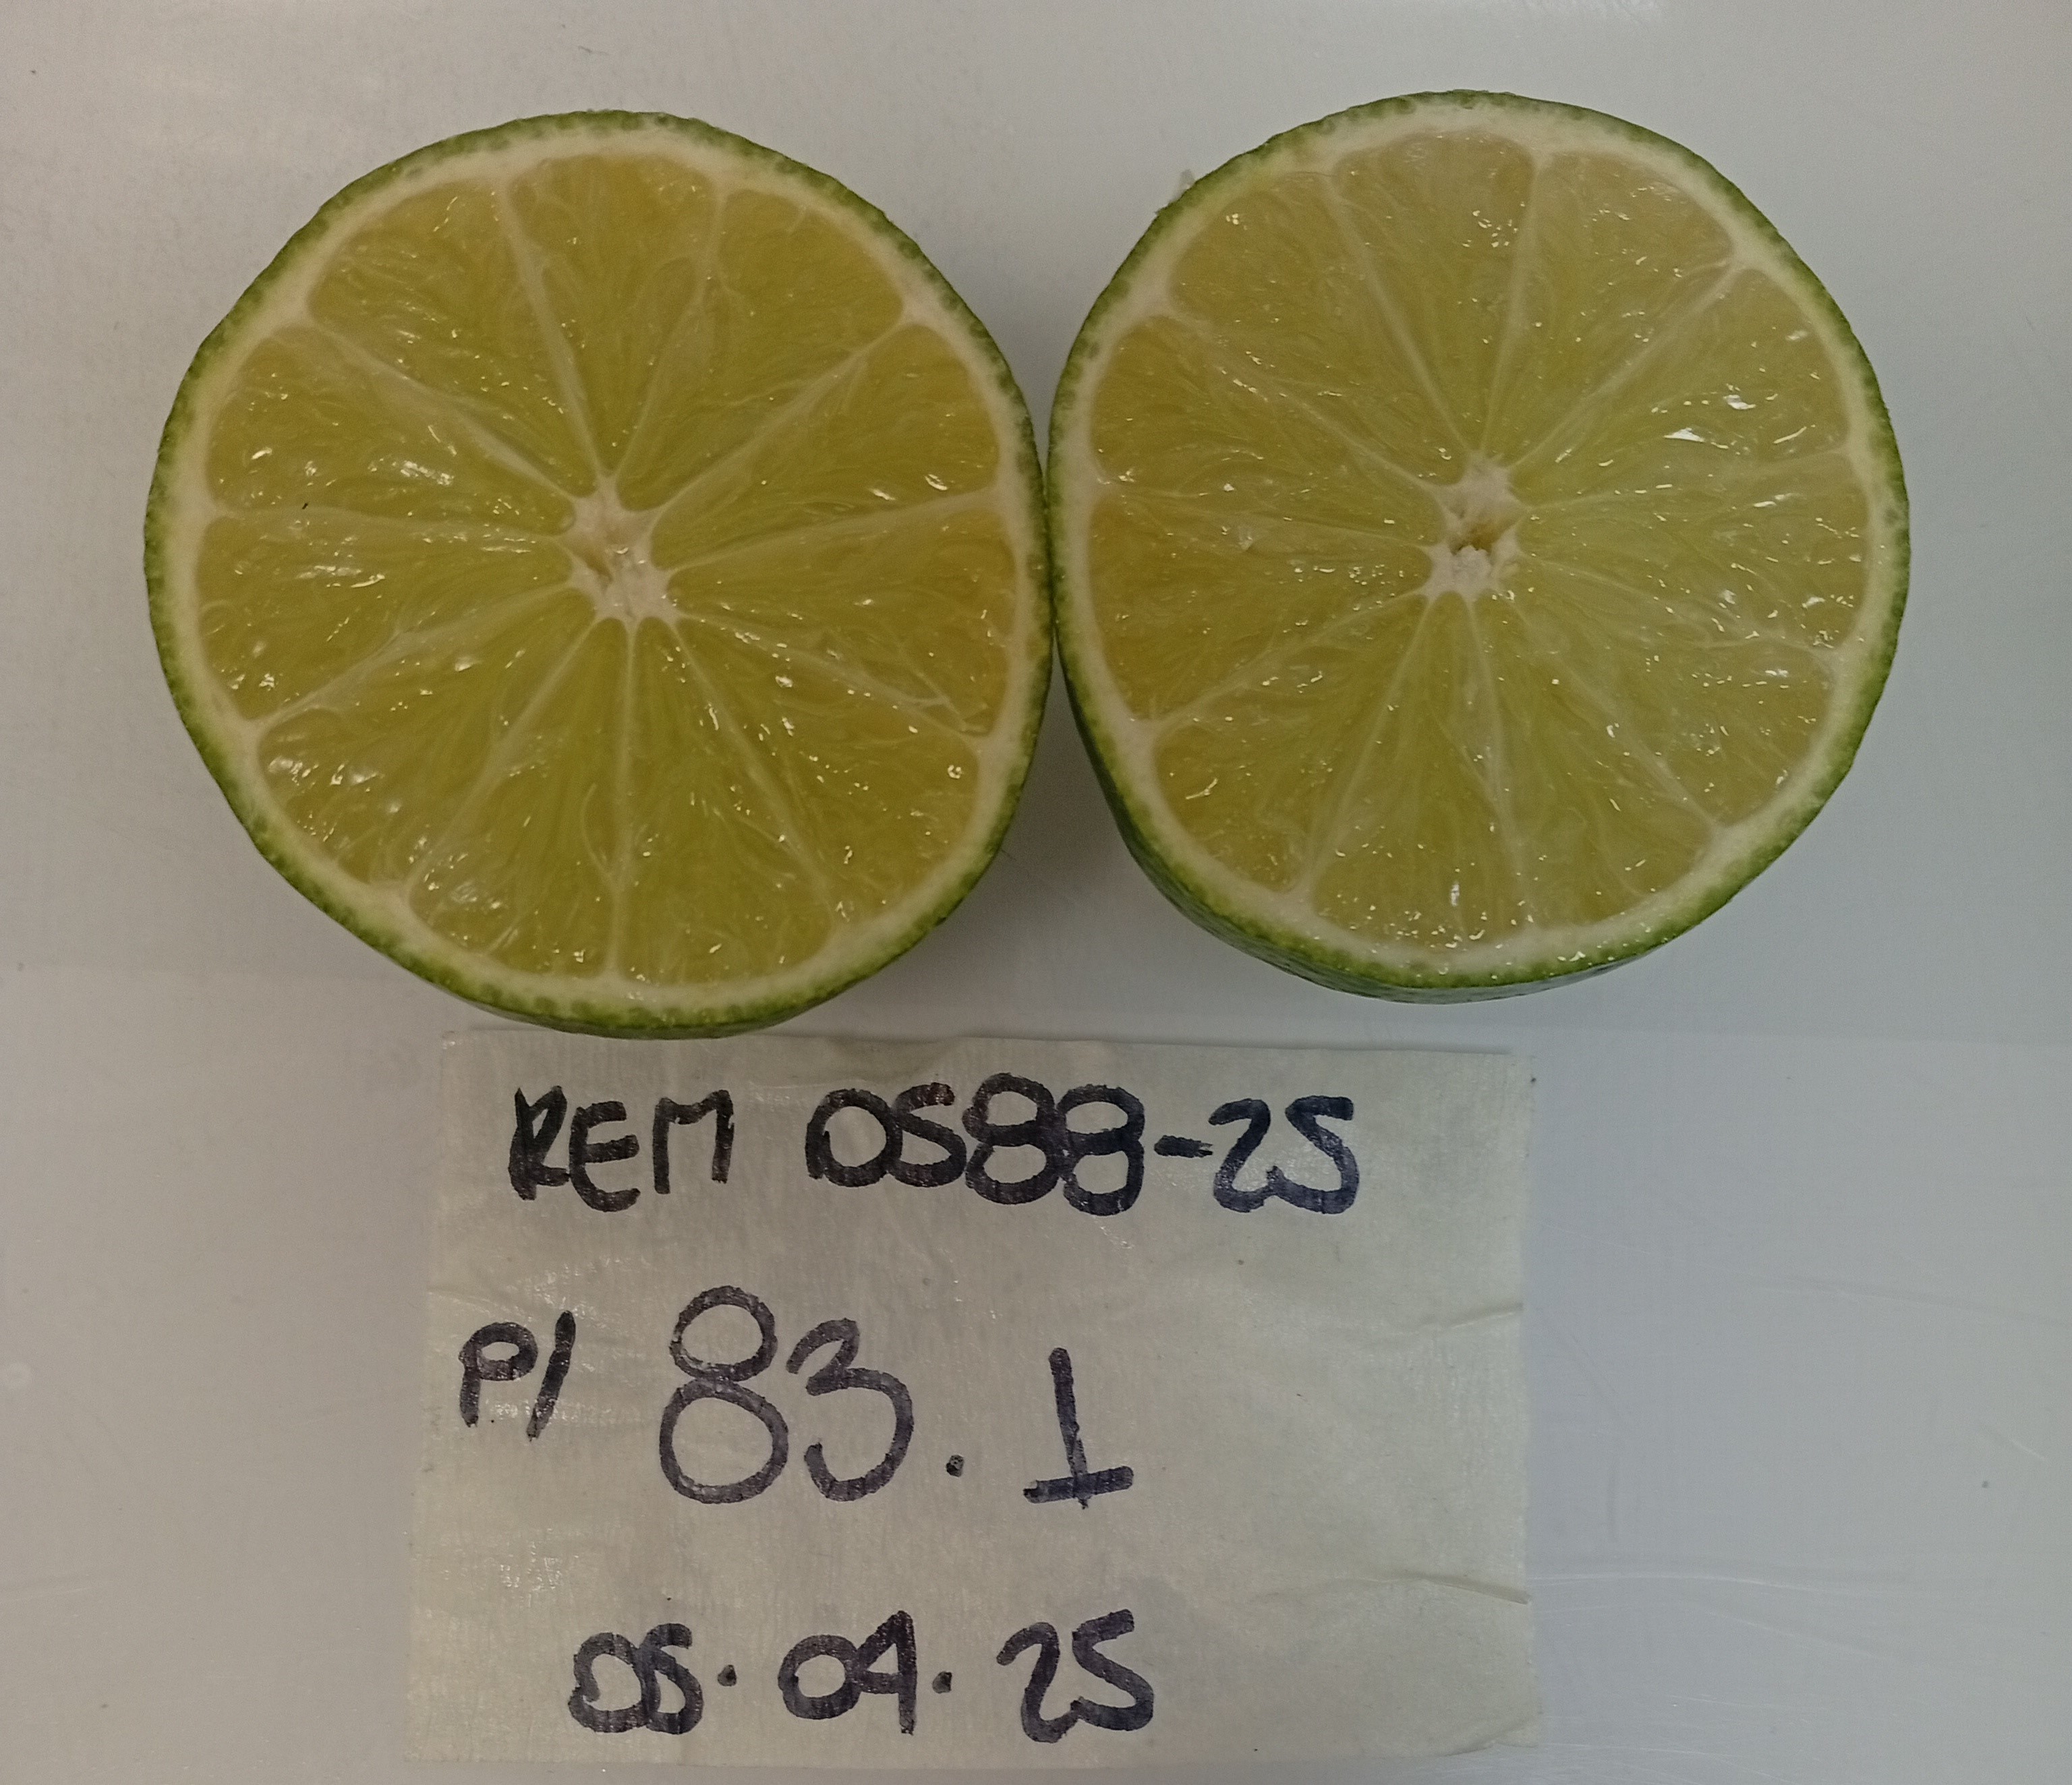 REM 0588-25
P/ 83.1
05.04.25